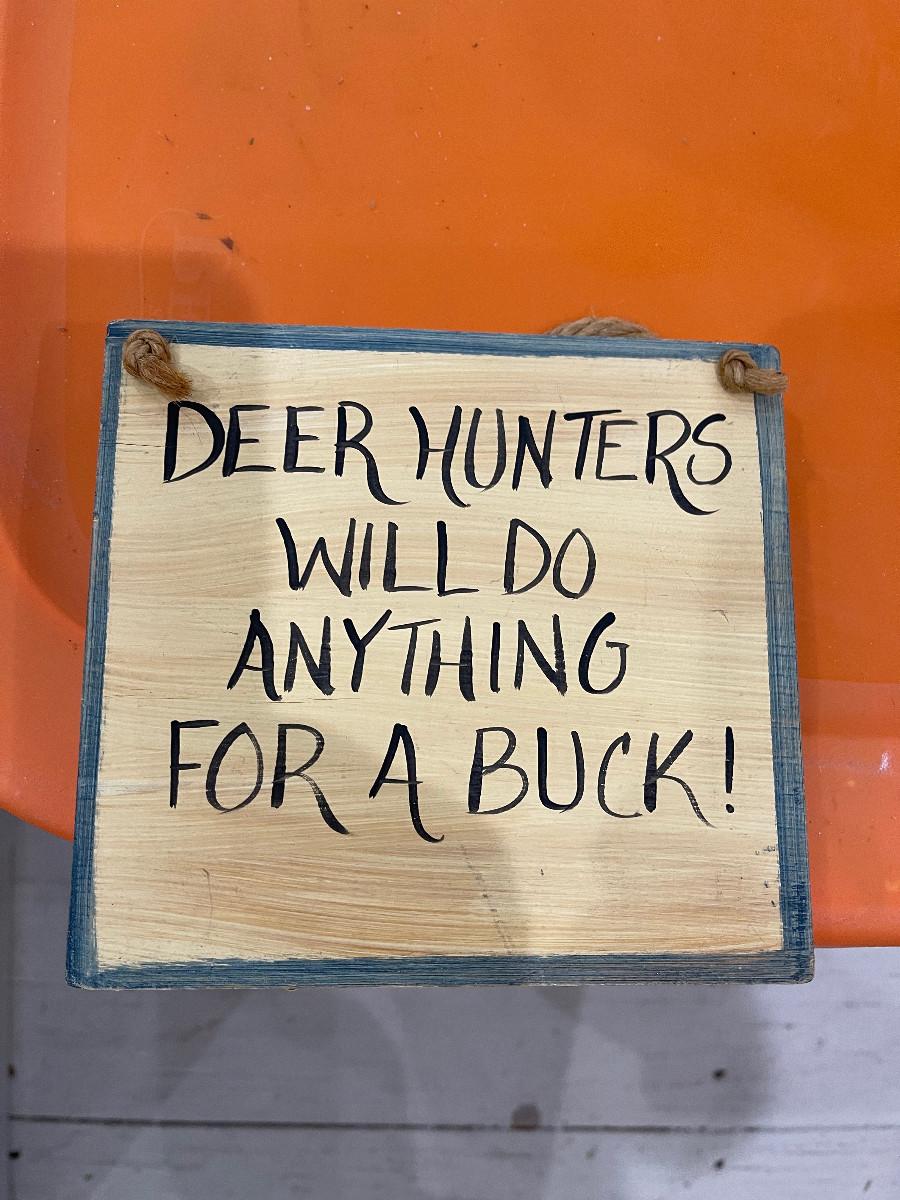 DEER HUNTERS
WILL DO
ANYTHING
FOR A BUCK!